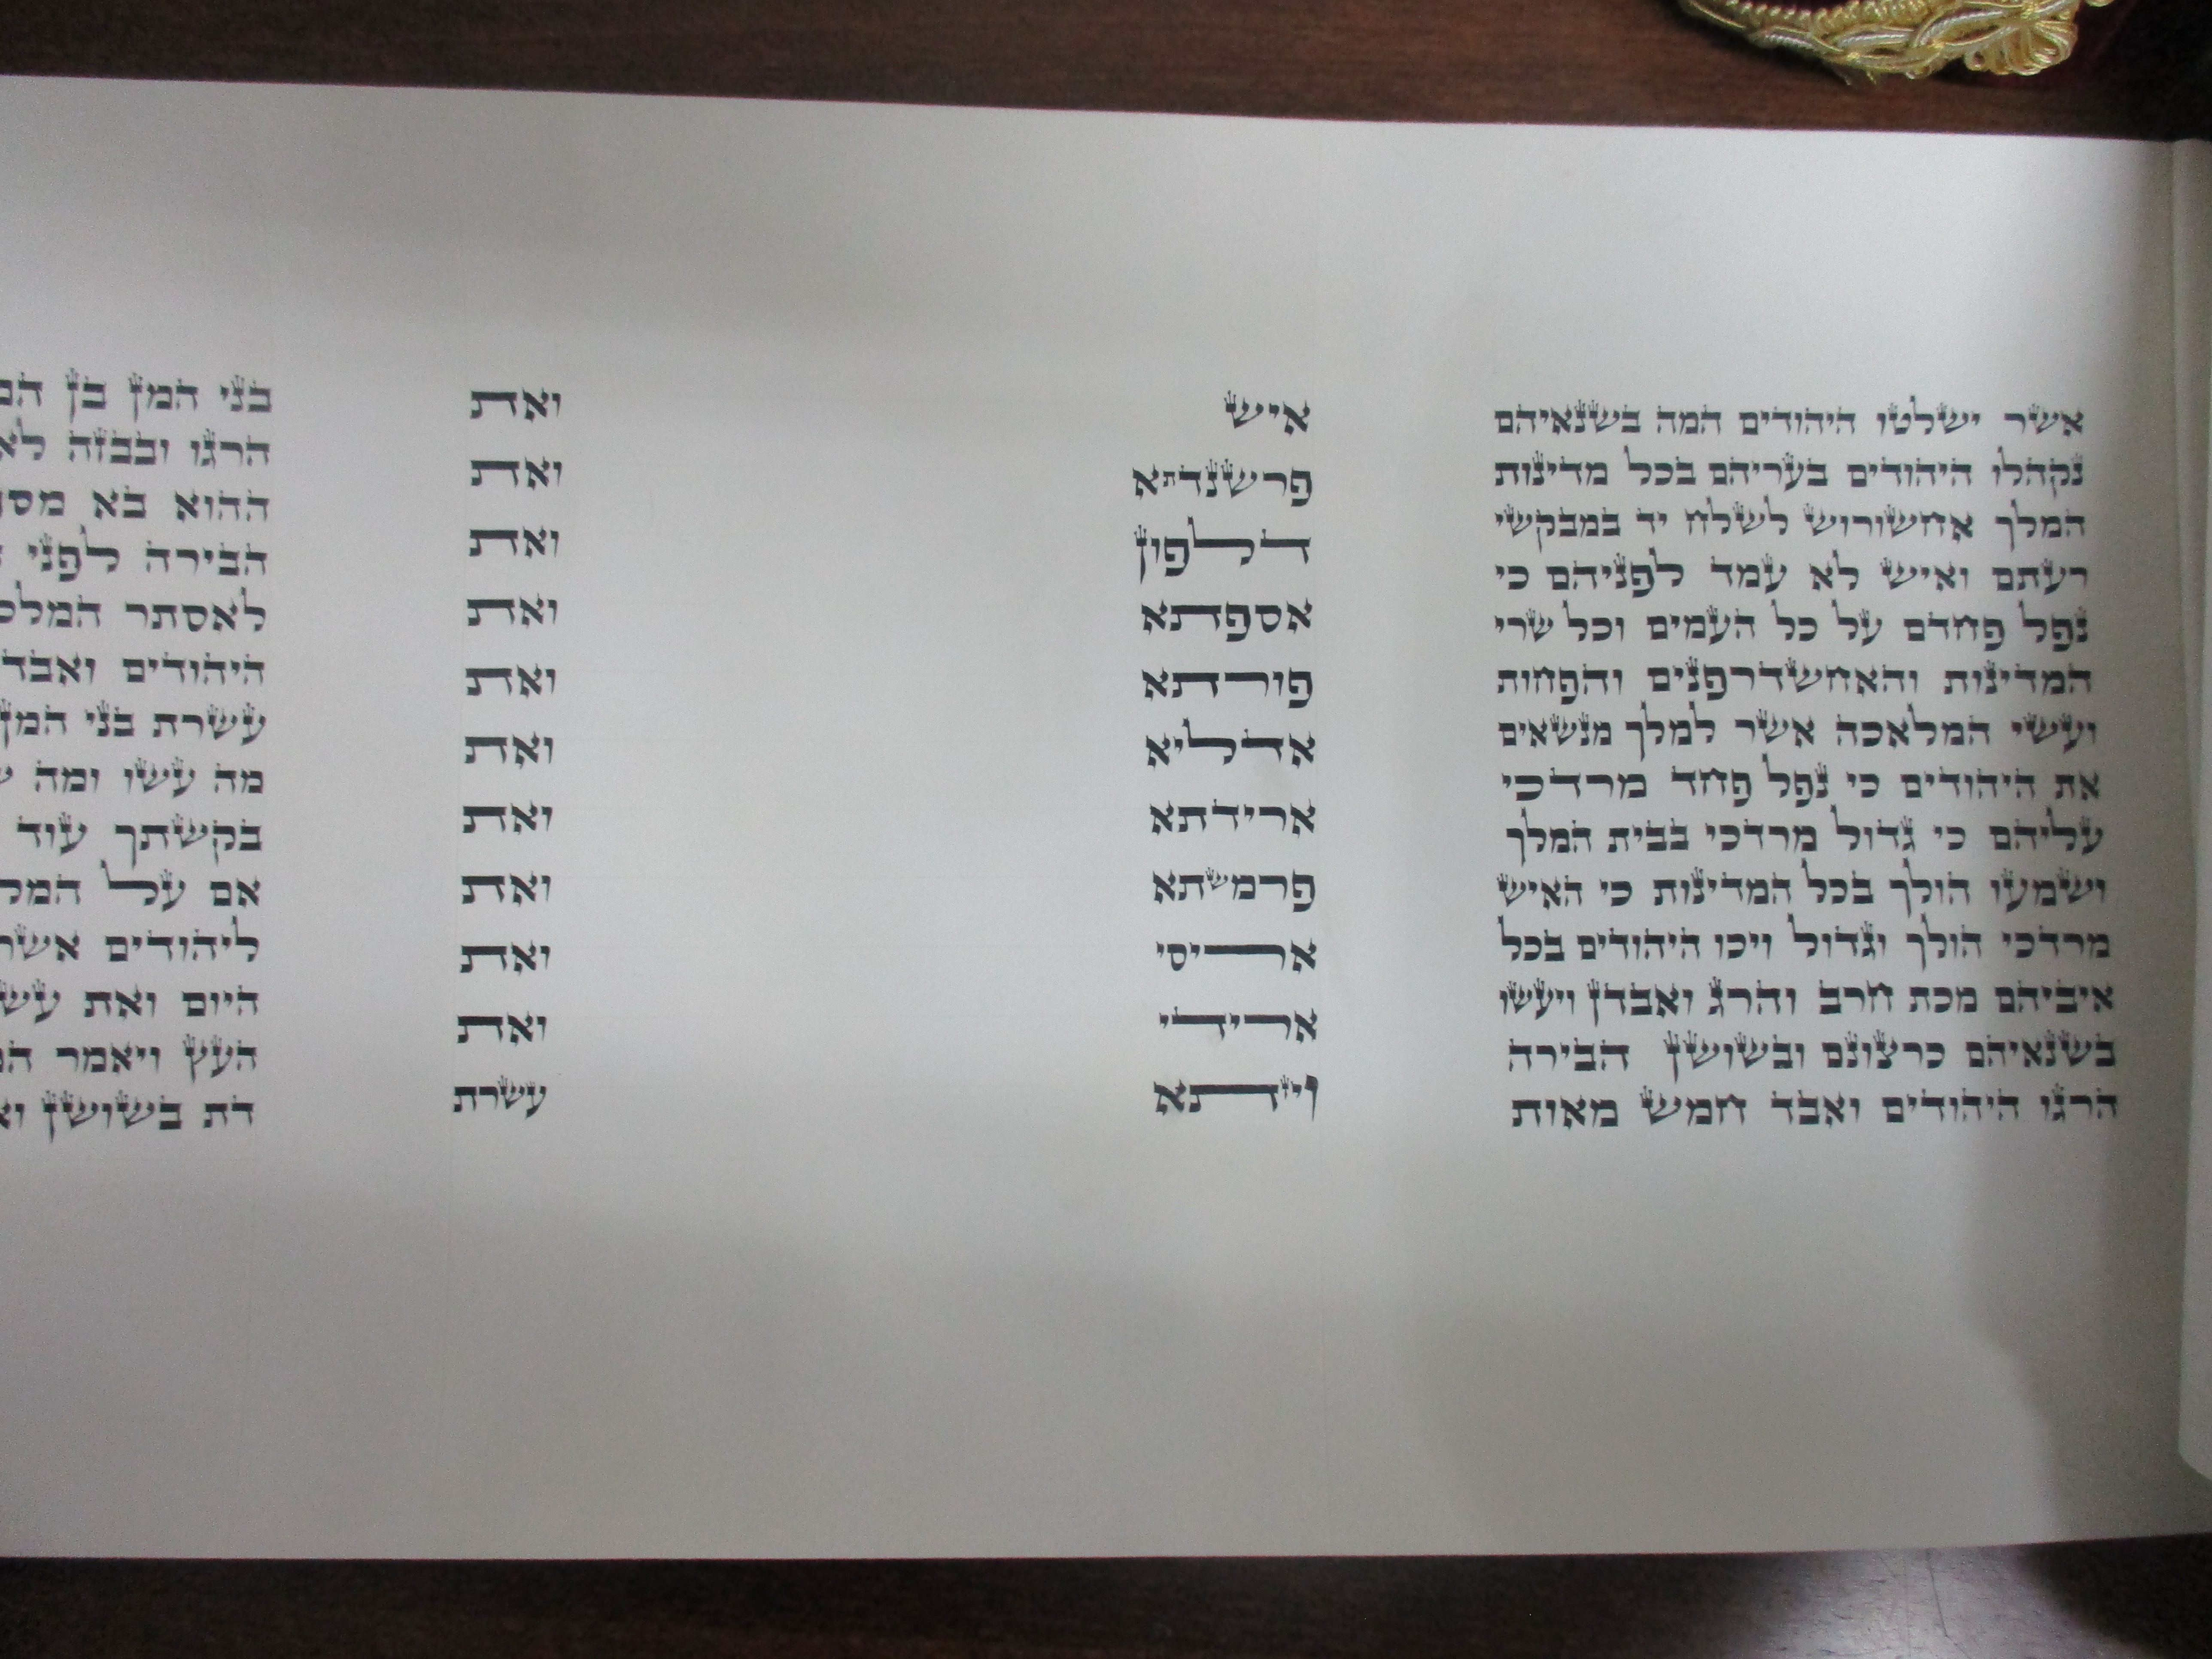 אשר ישלטו היהודים המה בשנאיהם
נקהלו היהודים בעריהם בכל מדינות
המלך אחשורוש לשלח יד במבקשי
רעתם ואיש לא עמד לפניהם כי
נפל פחדם על כל העמים וכל שרי
המדינות והאחשדרפנים והפחות
ועשי המלאכה אשר למלך מנשאים
את היהודים כי נפל פחד מרדכי
עליהם כי גדול מרדכי בבית המלך
ושמעו הולך בכל המדינות כי האיש
מרדכי הולך וגדול ויכו היהודים בכל
איביהם מכת חרב והרג ואבדן ויעשו
בשנאיהם כרצונם ובשושן הבירה
הרגו היהודים ואבד חמש מאות
איש ואת
פרשנדתא ואת
דלפון ואת
אספתא ואת
פורתא ואת
אדליא ואת
ארידתא ואת
פרמשתא ואת
אריסי ואת
ארידי ואת
ויזתא עשרת
בני המן בן
הרגו ובבזה לא
ההוא בא
הבירה לפני
לאסתר
היהודים ואבד
עשרת בני המן
מה עשו ומה
בקשתך עוד
אם על
ליהודים אשר
היום ואת
העץ ויאמר
דת בשושן